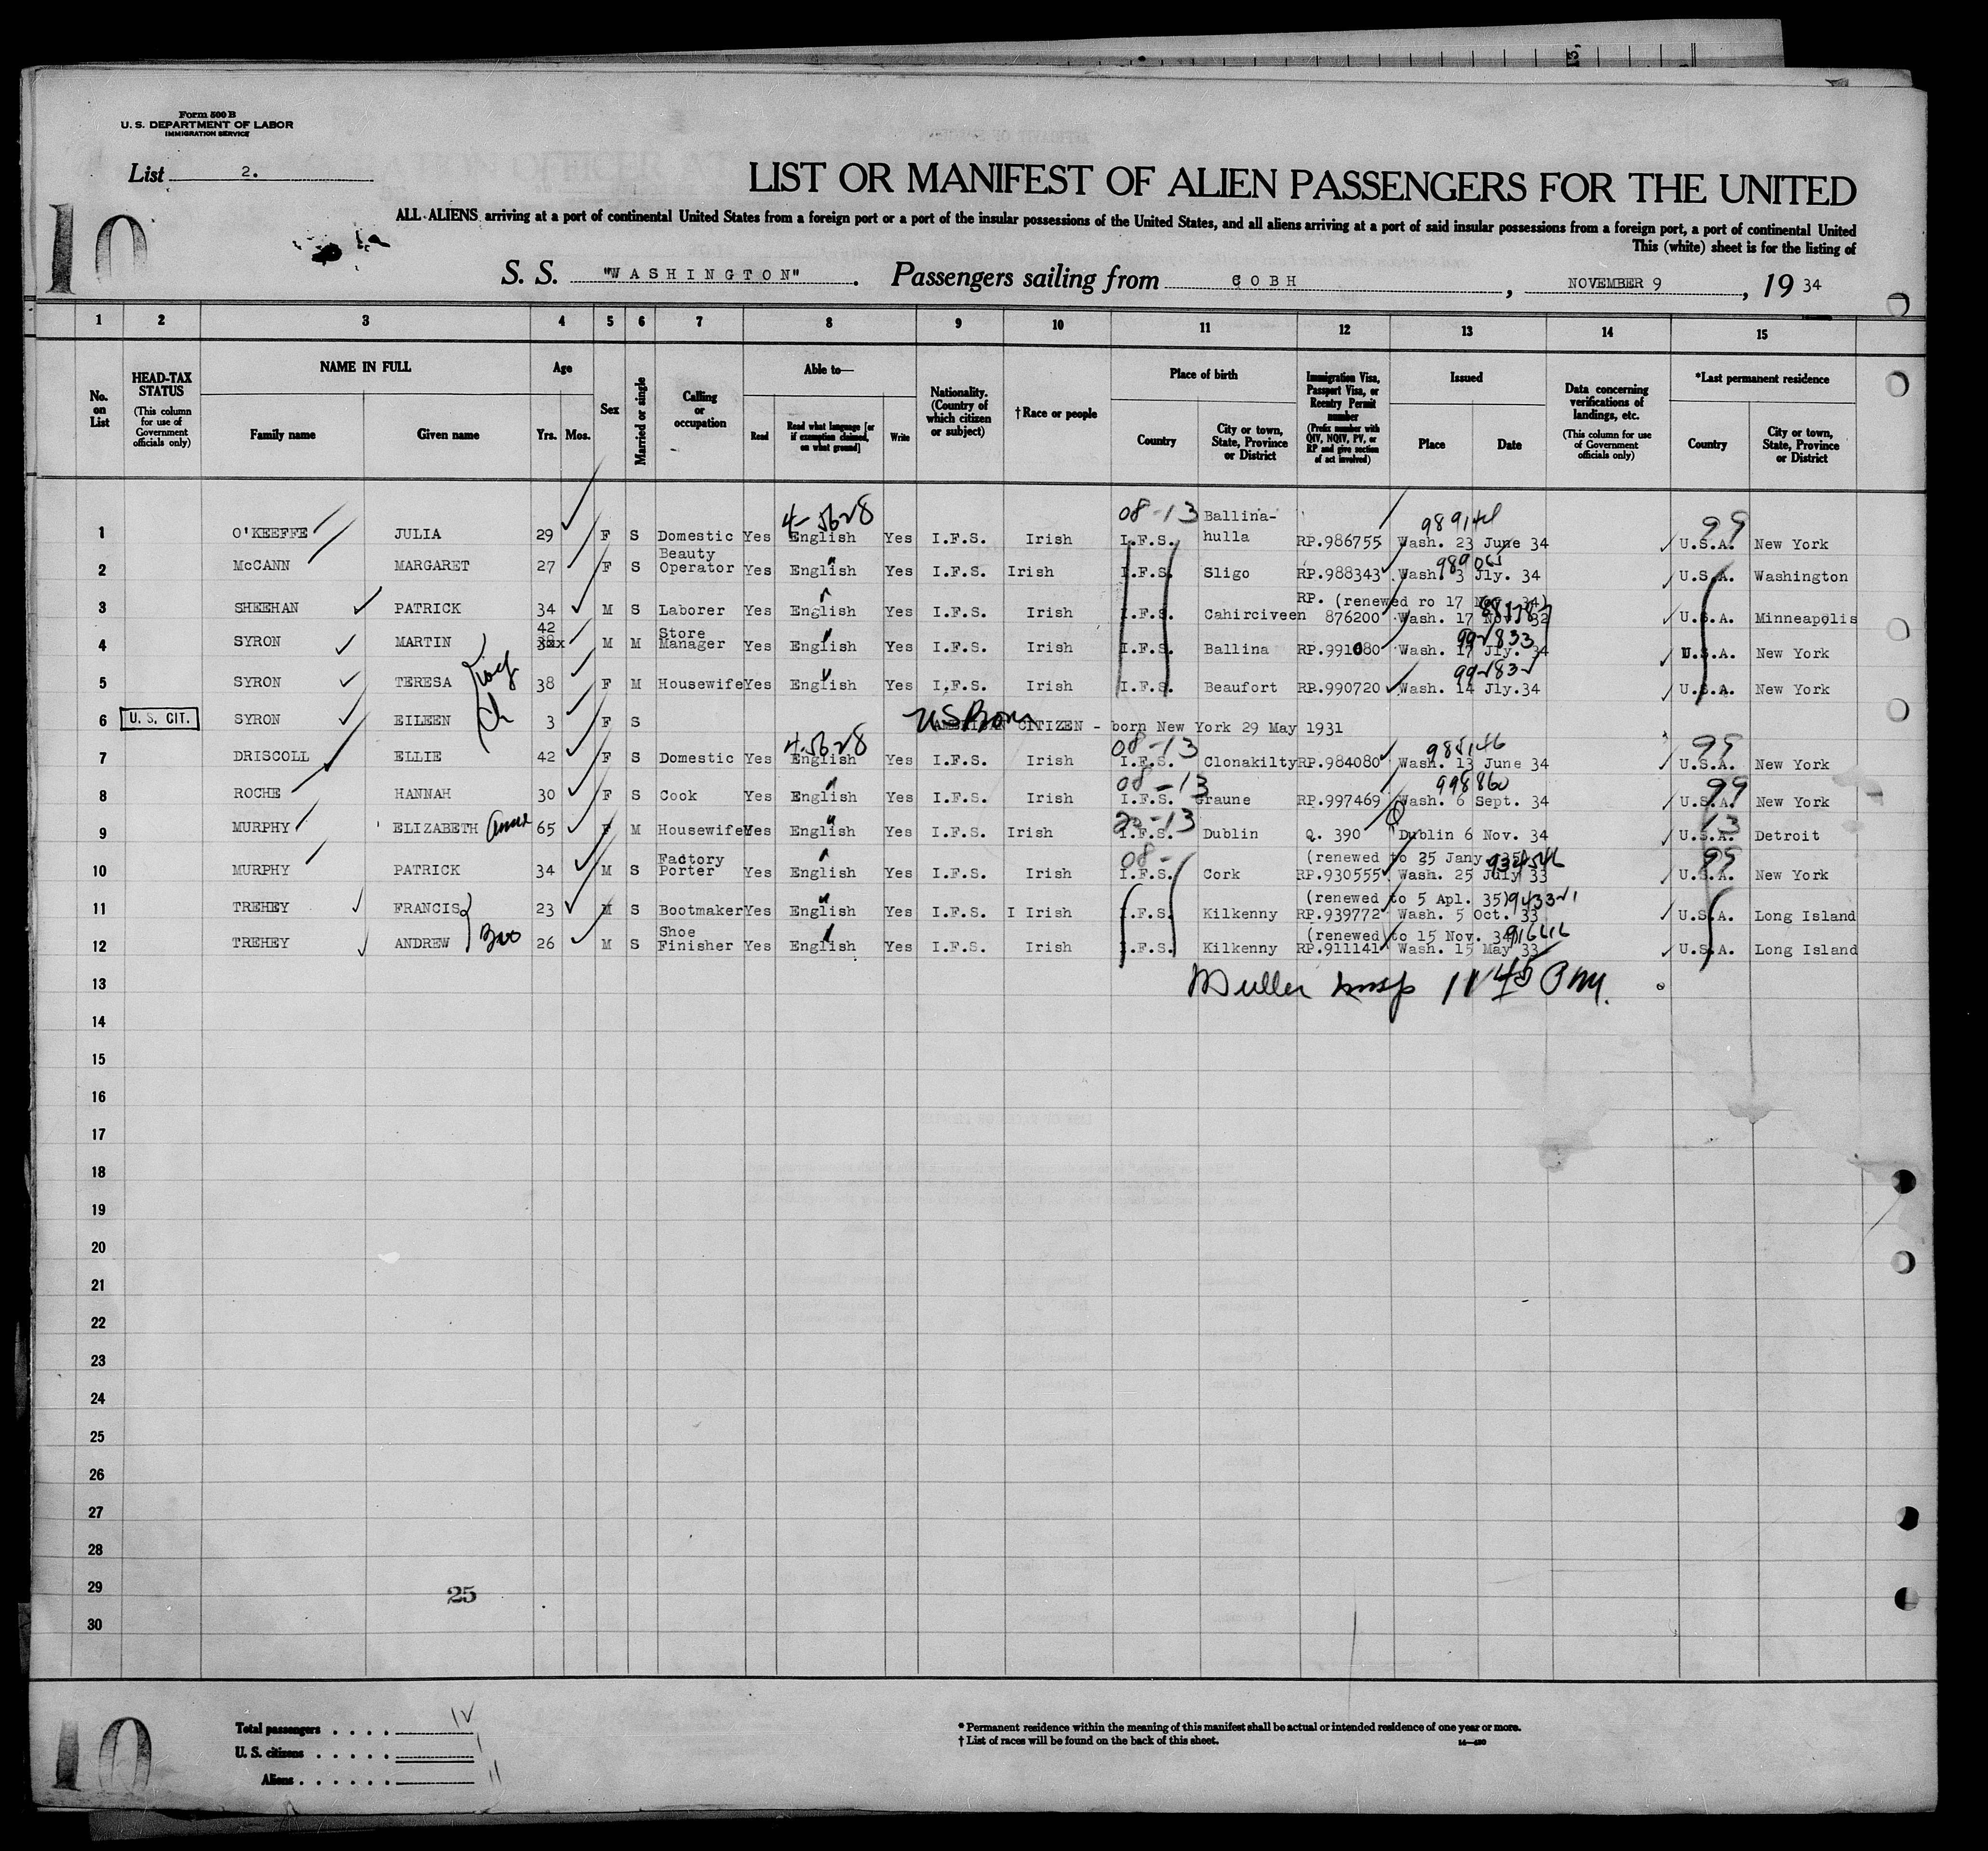 Form 500 B
U. S. DEPARTMENT OF LABOR
IMMIGRATION SERVICE
List 2.
10
LIST OR MANIFEST OF ALIEN PASSENGERS FOR THE UNITED
ALL ALIENS arriving at a port of continental United States from a foreign port or a port of the insular possessions of the United States, and all aliens arriving at a port of said insular possessions from a foreign port, a port of continental United
This (white) sheet is for the listing of
S. S. "WASHINGTON". Passengers sailing from COBH, NOVEMBER 9, 19 34
1 2 3 4 5 6 7 8 9 10 11 12 13 14 15
No. on List
HEAD-TAX STATUS
(This column for use of Government officials only)
NAME IN FULL
Family name
Given name
Age
Yrs. Mos.
Sex
Married or single
Calling or occupation
Able to—
Read
Read what language [or if exemption claimed, on what ground]
Write
Nationality. (Country of which citizen or subject)
†Race or people
Place of birth
Country
City or town, State, Province or District
Immigration Visa, Passport Visa, or Reentry Permit number
(Prefix number with QIV, NQIV, PV, or RP and give section of act involved)
Issued
Place
Date
Data concerning verifications of landings, etc.
(This column for use of Government officials only)
*Last permanent residence
Country
City or town, State, Province or District
4-5628 08-13 Ballina- 989141 99
1 O'KEEFFE JULIA 29 F S Domestic Yes English Yes I.F.S. Irish I.F.S. hulla RP.986755 Wash. 23 June 34 U.S.A. New York
Beauty
2 McCANN MARGARET 27 F S Operator Yes English Yes I.F.S. Irish I.F.S. Sligo RP.988343 Wash. 3 Jly. 34 U.S.A. Washington
RP. (renewed ro 17 Nov. 34)
3 SHEEHAN PATRICK 34 M S Laborer Yes English Yes I.F.S. Irish I.F.S. Cahirciveen 876200 Wash. 17 Nov. 32 U.S.A. Minneapolis
42 Store 992833
4 SYRON MARTIN M M Manager Yes English Yes I.F.S. Irish I.F.S. Ballina RP.991080 Wash. 17 Jly. 34 U.S.A. New York
992832
5 SYRON TERESA 38 F M Housewife Yes English Yes I.F.S. Irish I.F.S. Beaufort RP.990720 Wash. 14 Jly.34 U.S.A. New York
6 U. S. CIT. SYRON EILEEN Ch 3 F S US Born AMERICAN CITIZEN - born New York 29 May 1931
4-5628 08-13 985146 99
7 DRISCOLL ELLIE 42 F S Domestic Yes English Yes I.F.S. Irish I.F.S. Clonakilty RP.984080 Wash. 13 June 34 U.S.A. New York
08-13 998860 99
8 ROCHE HANNAH 30 F S Cook Yes English Yes I.F.S. Irish I.F.S. Graune RP.997469 Wash. 6 Sept. 34 U.S.A. New York
22-13 Q 13
9 MURPHY ELIZABETH Anne 65 F M Housewife Yes English Yes I.F.S. Irish I.F.S. Dublin Q. 390 Dublin 6 Nov. 34 U.S.A. Detroit
Factory 08- (renewed to 25 Jany. 35) 99
10 MURPHY PATRICK 34 M S Porter Yes English Yes I.F.S. Irish I.F.S. Cork RP.930555 Wash. 25 July 33 U.S.A. New York
(renewed to 5 Apl. 35)
11 TREHEY FRANCIS 23 M S Bootmaker Yes English Yes I.F.S. I Irish I.F.S. Kilkenny RP.939772 Wash. 5 Oct. 33 U.S.A. Long Island
Bro Shoe (renewed to 15 Nov. 34)
12 TREHEY ANDREW 26 M S Finisher Yes English Yes I.F.S. Irish I.F.S. Kilkenny RP.911141 Wash. 15 May 33 U.S.A. Long Island
13 Muller Insp 11 45 PM.
14
15
16
17
18
19
20
21
22
23
24
25
26
27
28
29 25
30
10
Total passengers . . . . 12
U. S. citizens . . . . . 1
Aliens . . . . . . 11
* Permanent residence within the meaning of this manifest shall be actual or intended residence of one year or more.
† List of races will be found on the back of this sheet.
14—430